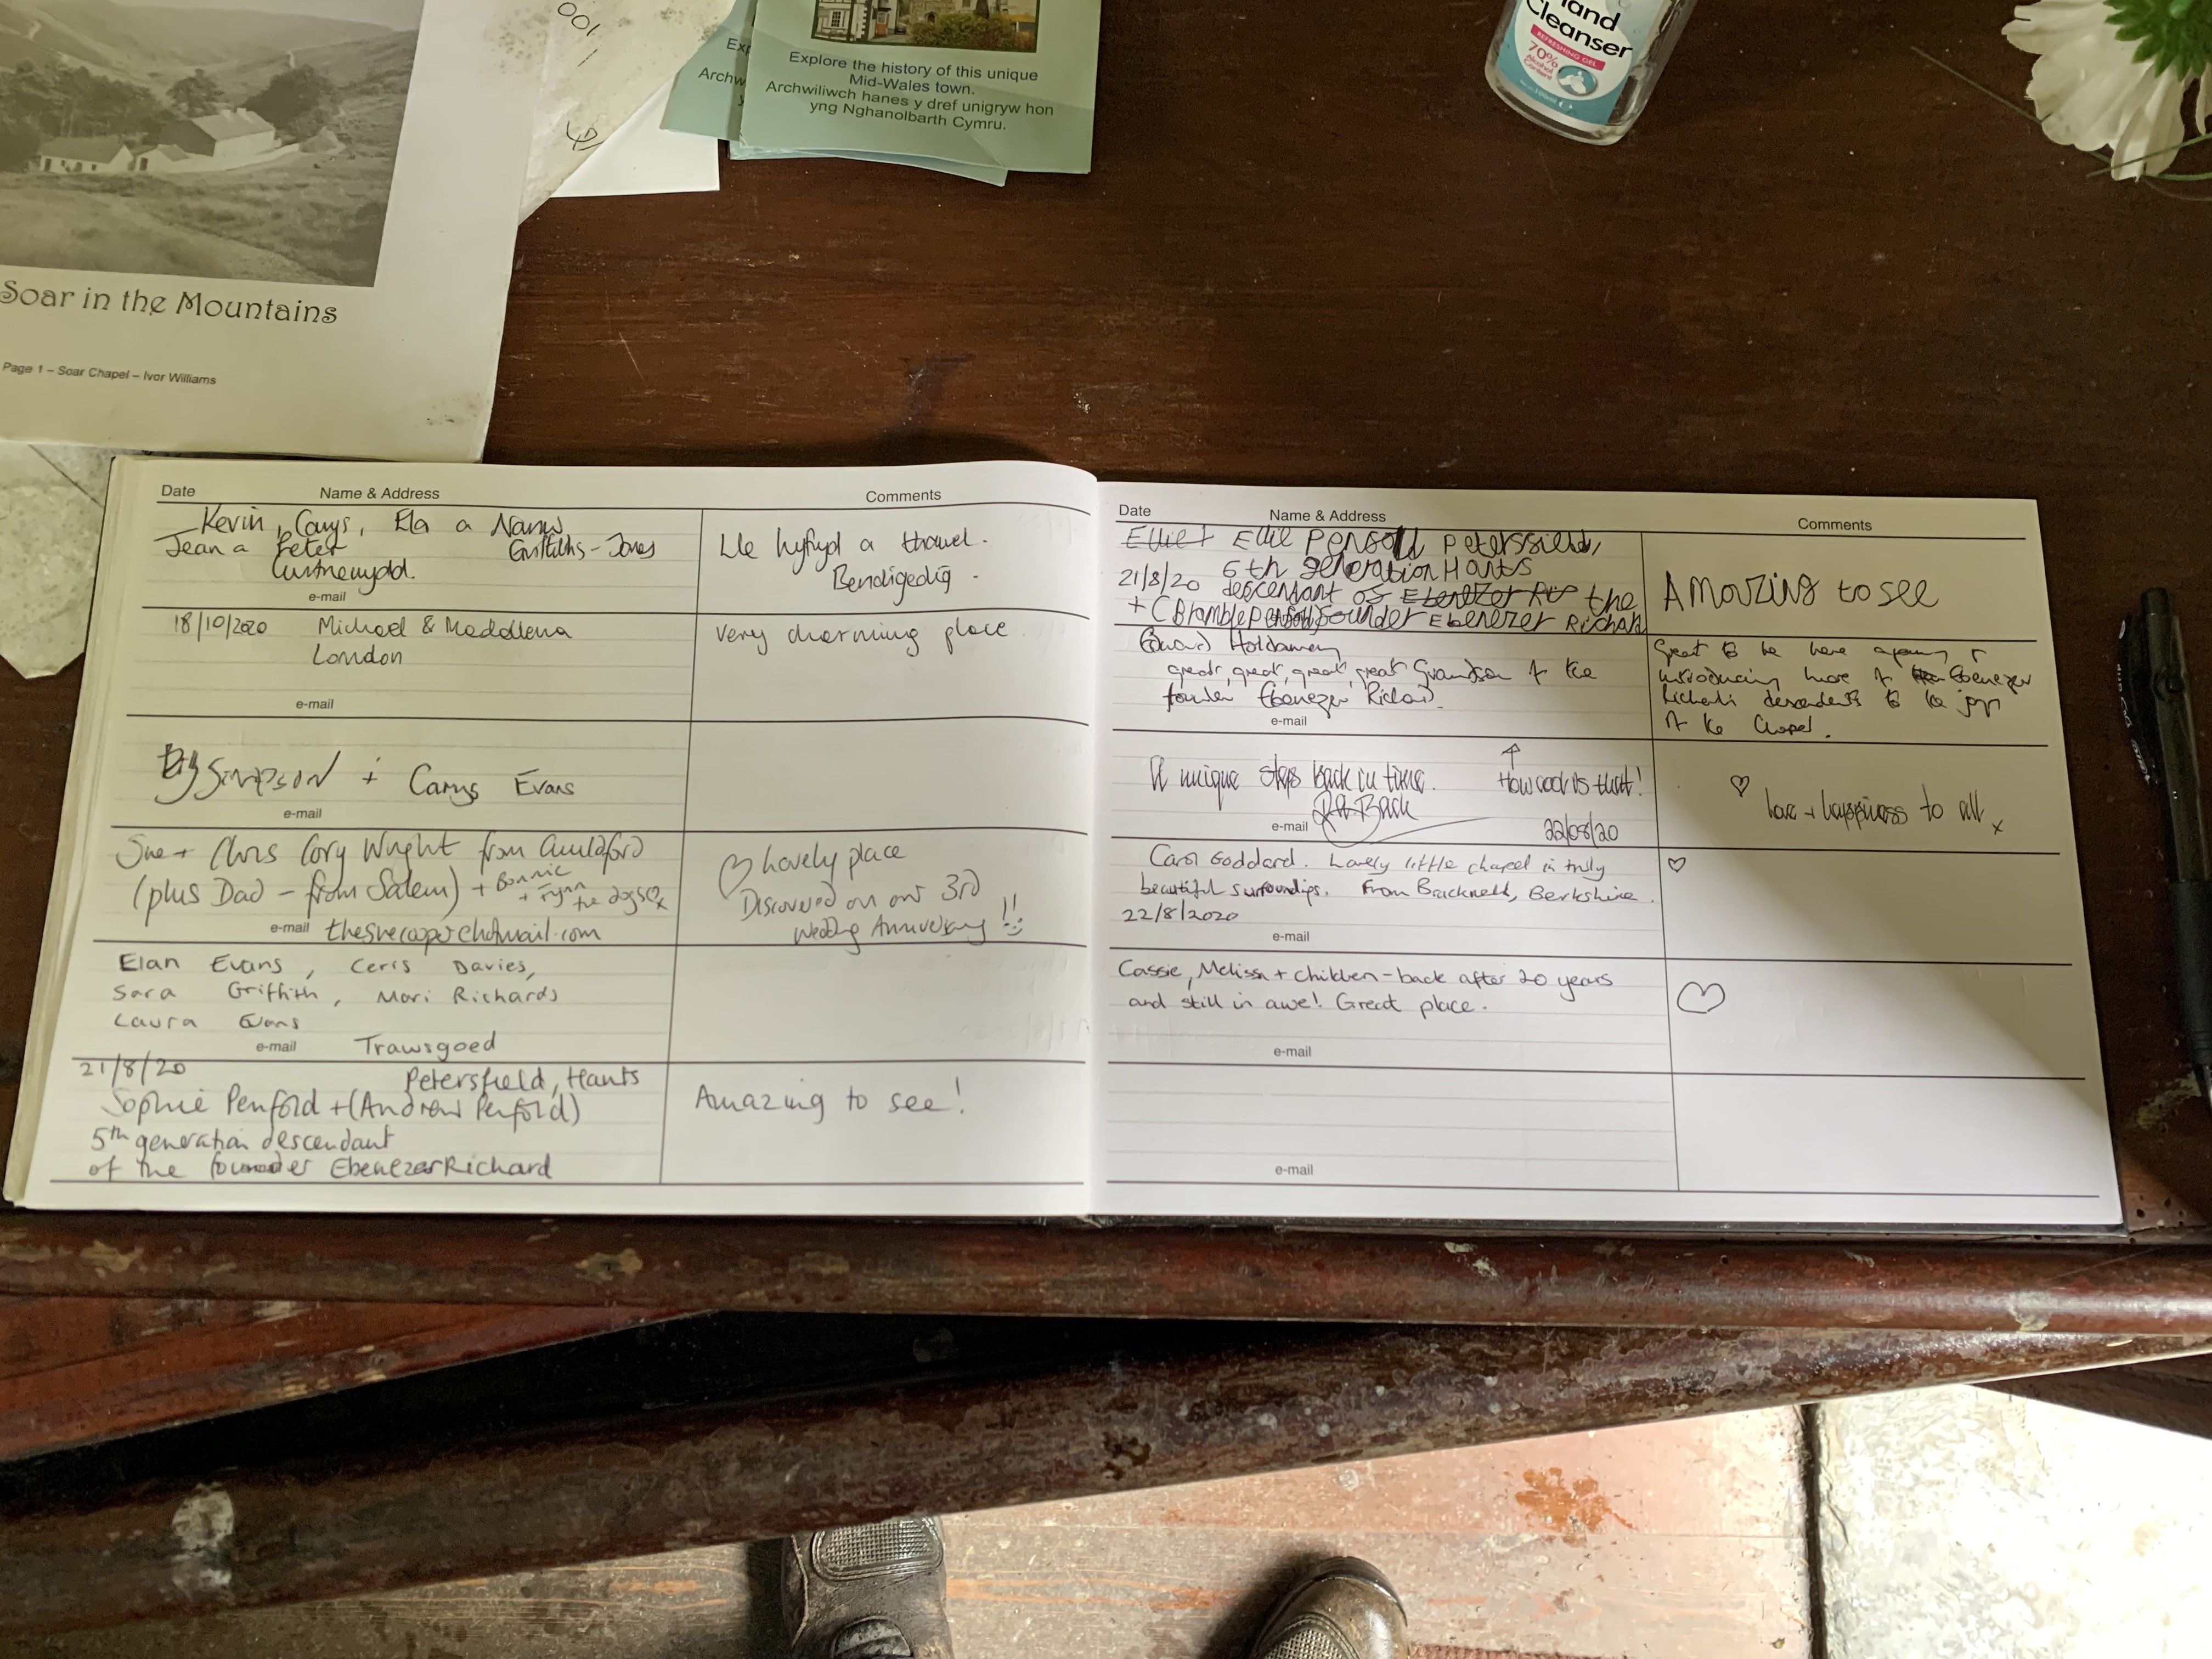 Soar in the Mountains
Page 1 – Soar Chapel – Ivor Williams
001
Exp
Archw
y
Explore the history of this unique
Mid-Wales town.
Archwiliwch hanes y dref unigryw hon
yng Nghanolbarth Cymru.
Hand
Cleanser
REFRESHING GEL
70%
Alcohol
Content
100ml
Date Name & Address Comments
Kevin, Carys, Ela a Nanw
Jean a Peter Griffiths-Jones
e-mail
Lle hyfryd a thawel.
Bendigedig.
18/10/2020 Michael & Maddalena
London
e-mail
Very charming place.
SIMPSON + Carys Evans
e-mail
Sue + Chris Cory Wright from Guildford
(plus Dad – from Salem) + Bonnie
+ Fynn
the dogs x
e-mail
Lovely place
Discovered on our 3rd
Wedding Anniversary!!
Elan Evans, Ceris Davies,
Sara Griffith, Mari Richards
Laura Evans
e-mail Trawsgoed
21/8/20 Petersfield, Hants
Sophie Penfold + (Andrew Penfold)
5th generation descendant
of the founder Ebenezer Richard
Amazing to see!
Date Name & Address Comments
Ellie + Ellie Penfold Petersfield,
21/8/20 6th generation Hants
descendant of Ebenezer Ris the
+ C Bramble Penfold founder Ebenezer Richard
Amazing to see
Edward
great, great, great, great Grandson of the
founder Ebenezer Richard.
e-mail
Great to be here again &
introducing more of Ebenezer
Richard's descendents to the joys
of the Chapel.
A unique step back in time. How cool is that!
Back
e-mail 22/08/20
love + happiness to all x
Carol Goddard. Lovely little chapel in truly
beautiful surroundings. From Bracknell, Berkshire.
22/8/2020
e-mail
Cassie, Melissa + children – back after 20 years
and still in awe! Great place.
e-mail
e-mail